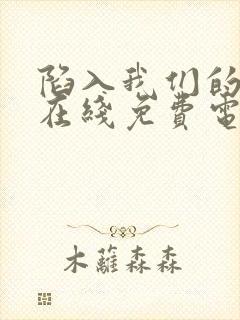 陷入我们的
在线免费电
木蘿森森